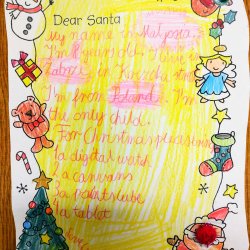 Dear Santa
My name is Matylda.
I'm 8 years old. I live in
Zabrze in
I'm from Poland. I'm
the only child.
For Christmas please send
1a digital
2a canvans
3a paints
4a tablet